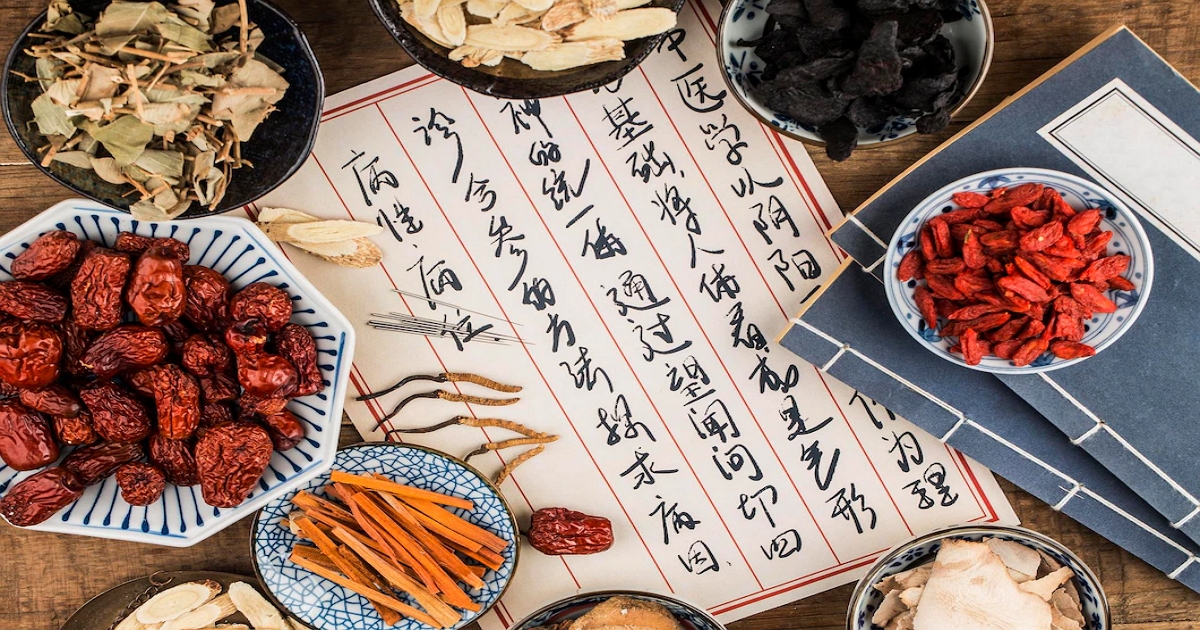 中医学以阴阳 作为理
基础，将人体看成是气形
神的统一体 通过望闻问切四
诊合参的方法 探求病因、
病性、病位